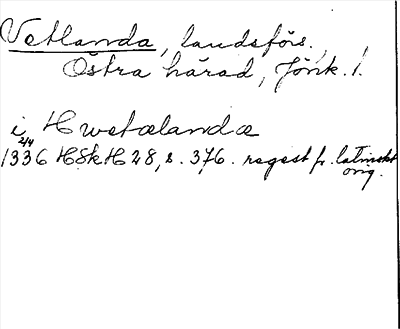 Vetlanda, landsförs.,
Östra härad, Jönk. l.
i Hwetælandæ
1336 24/4 HSkH 28, s. 376. regest fr. latinskt
orig.